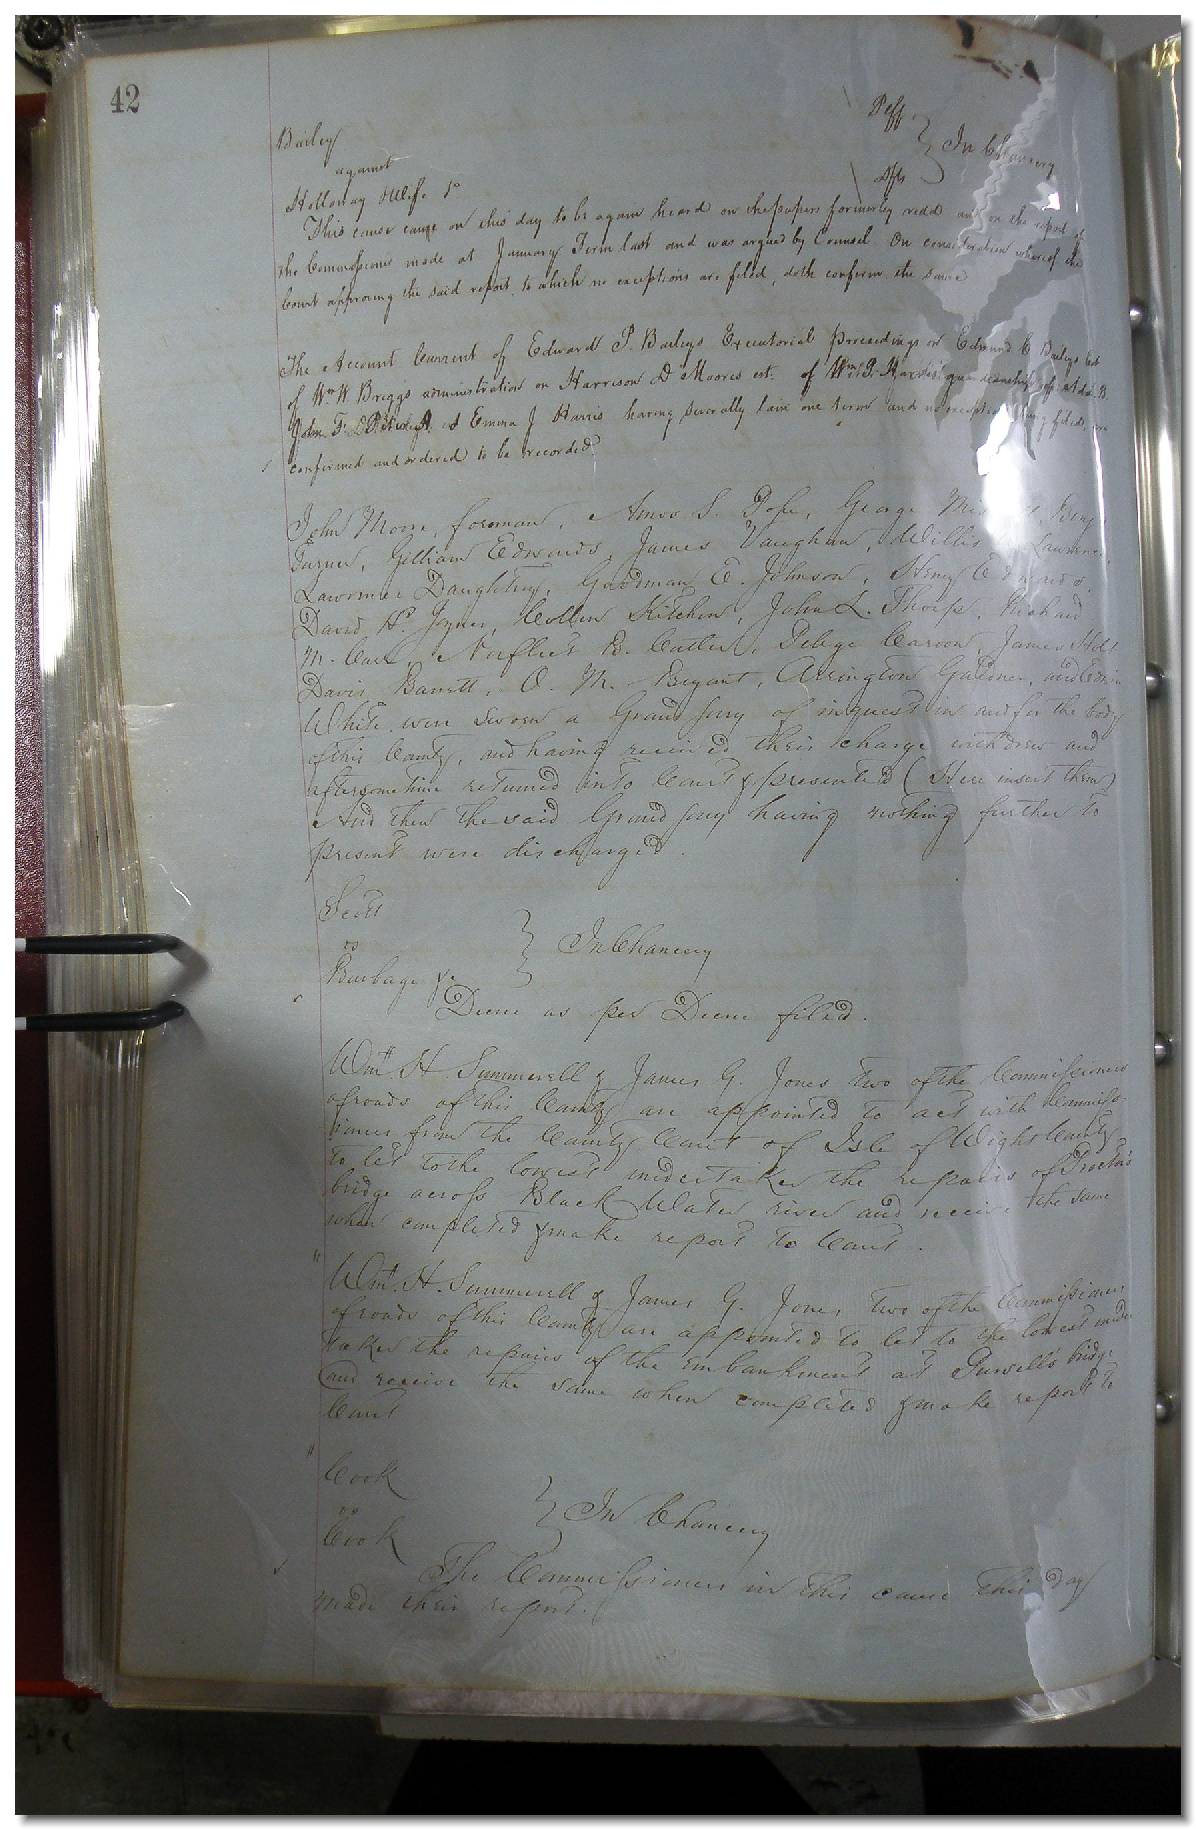 42
Bailey Plff.
against } In Chancery
Holloway Wife &c Dfts
This cause came on this day to be again heard on the papers formerly read and on the report of
the Commissioners made at January Term last and was argued by Counsel. On consideration whereof the
Court approving the said report, to which no exceptions are filed, doth confirm the same
The Account Current of Edward P. Baileys Executorial proceedings on Edmund C Baileys est
of Wm W Briggs administration on Harrison D Moores est. of Wm
John T. & Emma J Harris having severally lain one term and no exceptions being filed, are
confirmed and ordered to be recorded
John Moore, foreman, Amos S. Pope, George Benj.
Turner, Gilliam Edwards, James Vaughan, Willis Lawrence,
Lawrence Daughtrey, Goodman E. Johnson, Henry Edwards,
David H. Joyner, Hollen Kitchen, John L. Thorp, Richard
M. Norfleet B. Cutler, Pelege Carson, James Holt
Davis Barrett, O. M. Bryant, Arrington Gardner, and Edwin
White were sworn a Grand jury of inquest in and for the body
of this County, and having received their charge withdrew and
after sometime returned into Court & presented (Here insert them)
And then the said Grand jury having nothing further to
present were discharged.
Scott
vs } In Chancery
Burbage &c
Decree as per Decree filed.
Wm H. Summerell & James G. Jones two of the Commissioners
of roads of this County are appointed to act with Commiss-
ioners from the County Court of Isle of Wight County
to let to the lowest undertaker the repairs of Proctors
bridge across Black Water river and receive the same
when completed & make report to Court.
" Wm. H. Summerell & James G. Jones two of the Commissioners
of roads of this County are appointed to let to the lowest under
taker the repairs of the embankment at Purvell's bridge
and receive the same when completed & make report to
Court
" Cook
vs } In Chancery
Cook
The Commissioners in this cause this day
made their report.